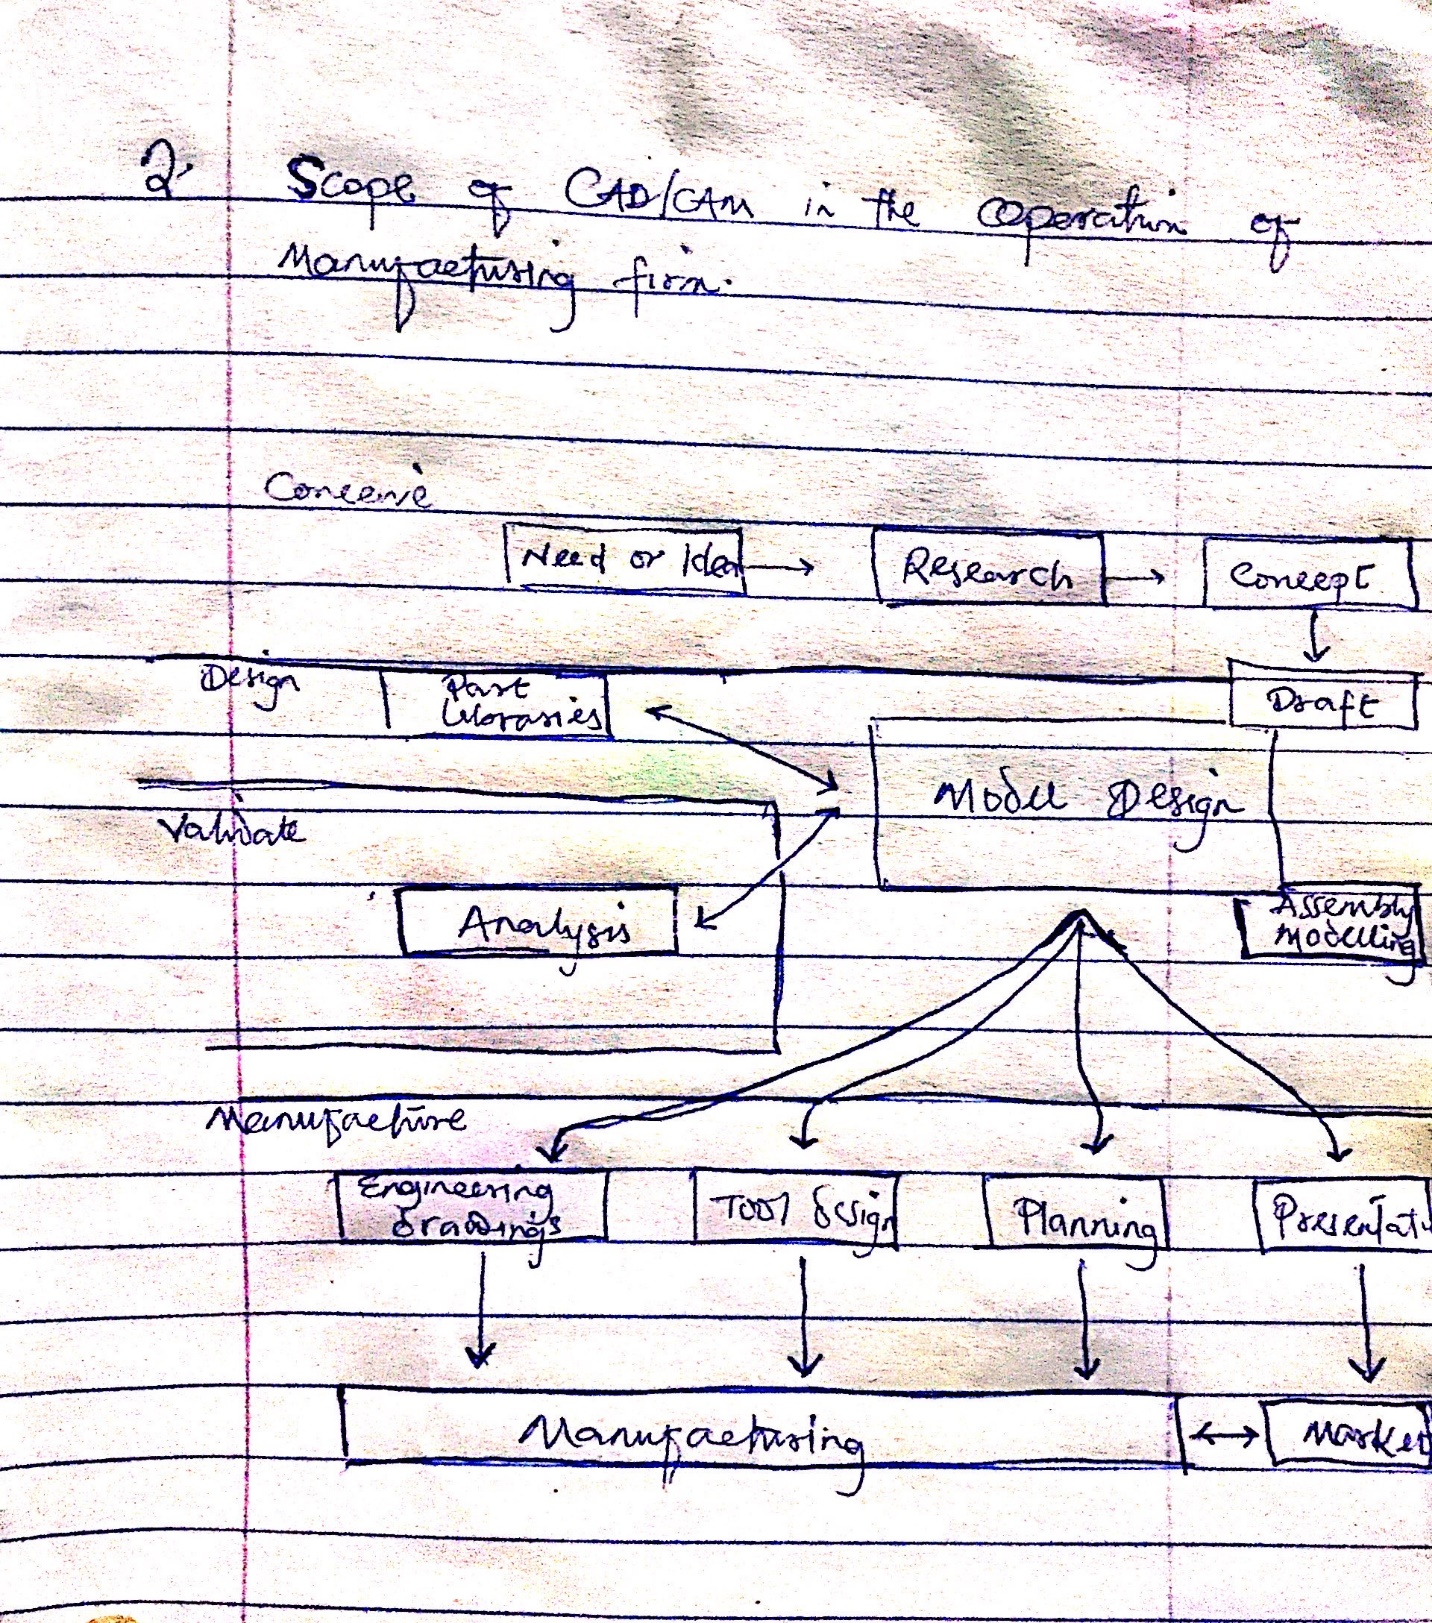 2. Scope of CAD/CAM in the operation of
Manufacturing firm.
Conceive
Need or Idea
Research
Concept
Design
Part
Libraries
Draft
Model Design
Validate
Analysis
Assembly
Modelling
Manufacture
Engineering
drawings
Tool design
Planning
Presentati
Manufacturing
Market